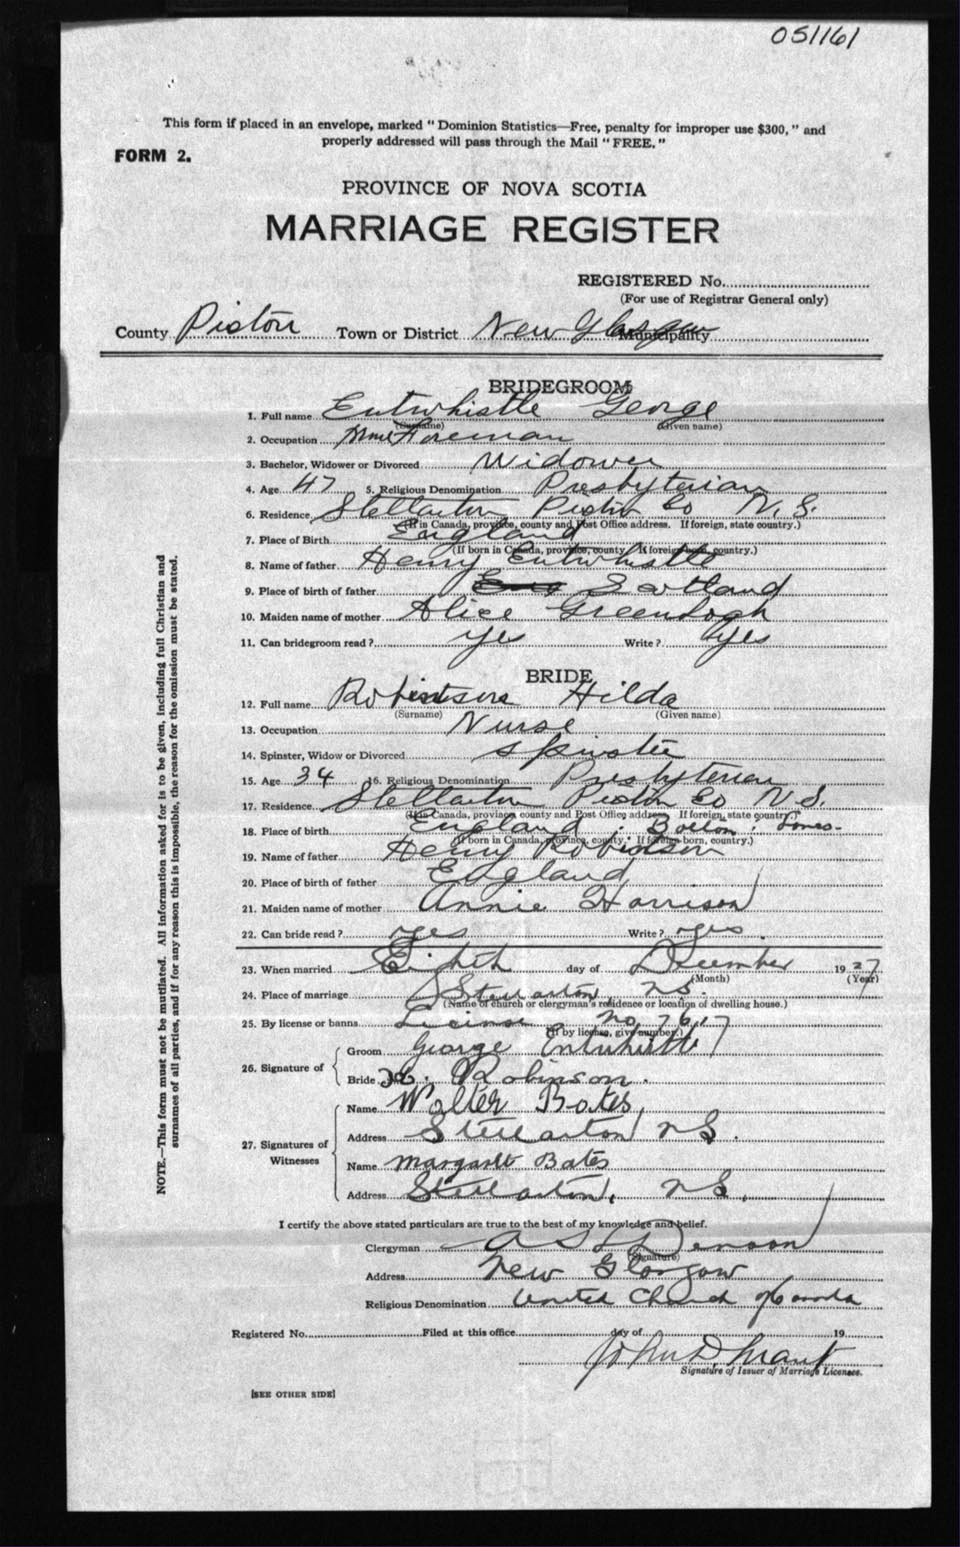 051161
This form if placed in an envelope, marked "Dominion Statistics—Free, penalty for improper use $300," and
properly addressed will pass through the Mail "FREE."
FORM 2.
PROVINCE OF NOVA SCOTIA
MARRIAGE REGISTER
REGISTERED No.
(For use of Registrar General only)
County Pictou Town or District New Glasgow Municipality
BRIDEGROOM
1. Full name Entwhistle George
(Surname) (Given name)
2. Occupation Mine Foreman
3. Bachelor, Widower or Divorced Widower
4. Age 47 5. Religious Denomination Presbyterian
6. Residence Stellarton Pictou Co N.S.
(If in Canada, province, county and Post Office address. If foreign, state country.)
7. Place of Birth England
(If born in Canada, province, county. If foreign born, country.)
8. Name of father Henry Entwhistle
9. Place of birth of father Eng Scotland
10. Maiden name of mother Alice Greenhogh
11. Can bridegroom read? yes Write? yes
BRIDE
12. Full name Robinson Hilda
(Surname) (Given name)
13. Occupation Nurse
14. Spinster, Widow or Divorced Spinster
15. Age 34 16. Religious Denomination Presbyterian
17. Residence Stellarton Pictou Co N.S.
(If in Canada, province county and Post Office address. If foreign, state country.)
18. Place of birth England. Bolton:
(If born in Canada, province, county. If foreign born, country.)
19. Name of father Henry Robinson
20. Place of birth of father England
21. Maiden name of mother Annie Harrison
22. Can bride read? yes Write? yes.
23. When married Eighth day of December 1927
(Month) (Year)
24. Place of marriage Stellarton, NS.
(Name of church or clergyman's residence or location of dwelling house.)
25. By license or banns License No 7617
(If by license, give number.)
26. Signature of
Groom George Entwhistle
Bride H. Robinson.
27. Signatures of Witnesses
Name Walter Bates,
Address Stellarton NS.
Name Margaret Bates
Address Stellarton, NS.
I certify the above stated particulars are true to the best of my knowledge and belief.
Clergyman
(Signature)
Address New Glasgow
Religious Denomination United Church of Canada
Registered No. Filed at this office day of 19
John D Grant
Signature of Issuer of Marriage Licenses.
[SEE OTHER SIDE]
NOTE.—This form must not be mutilated. All information asked for is to be given, including full Christian and
surnames of all parties, and if for any reason this is impossible, the reason for the omission must be stated.